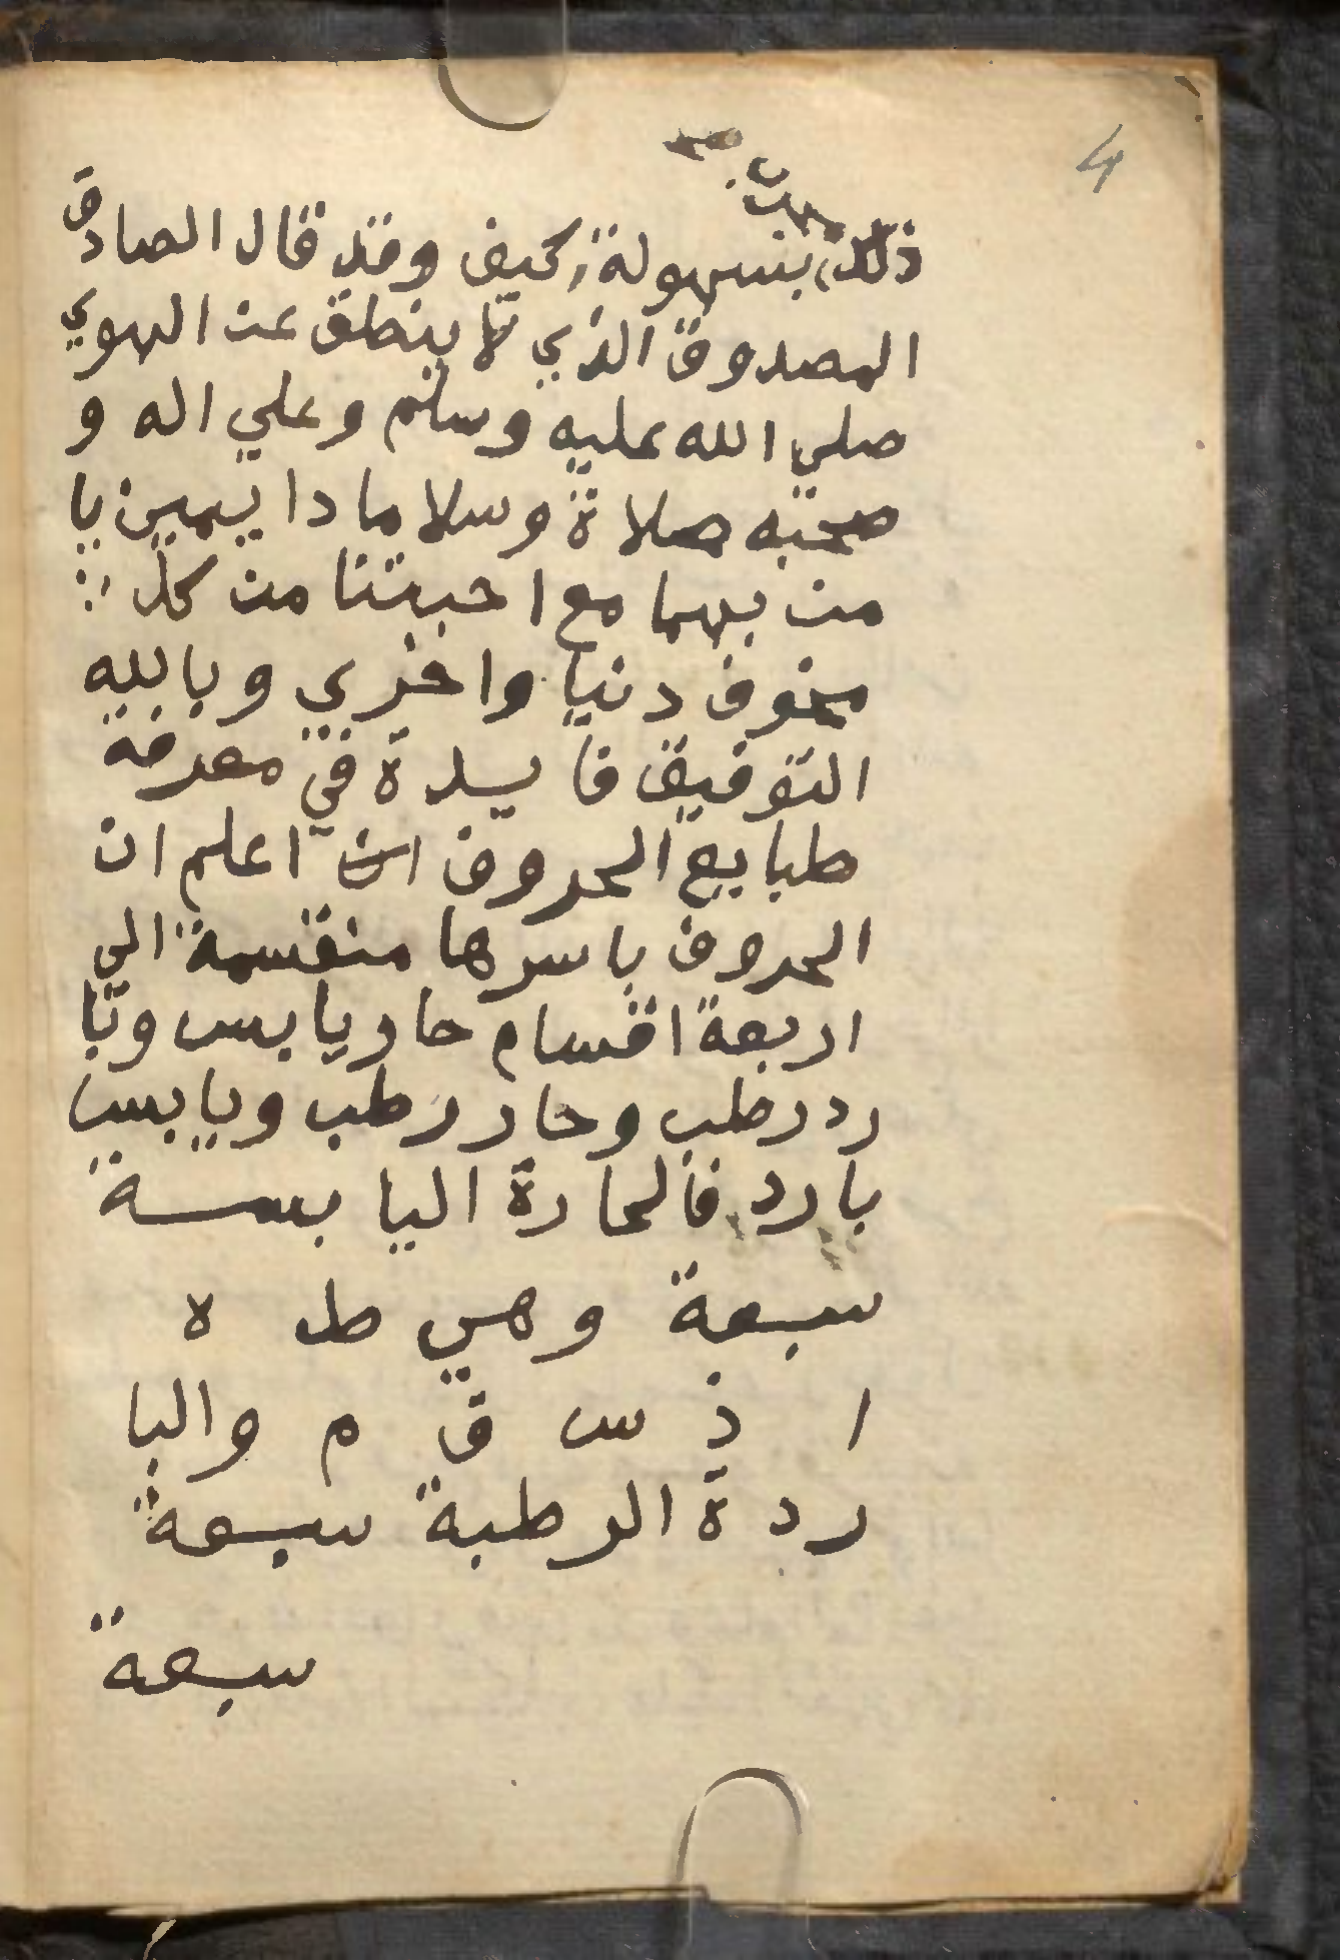 4
ذلك بسهولة كيف وقد قال الصادق
المصدوق الذي لا ينطق عن الهوي
صلي الله عليه وسلم وعلي اله و
صحبه صلاة وسلاما دايمين يا
من بهما مع احبتنا من كل
مخوف دنيا واخري وبالله
التوفيق فايدة في معرفة
طبايع الحروف اعلم ان
الحروف باسرها منقسمة الي
اربعة اقسام حار يابس وبا
رد رطب وحار رطب ويابس
بارد فالحارة اليابسة
سبعة وهي ط ه
ا ذ س ق م والبا
ردة الرطبة سبعة
سبعة